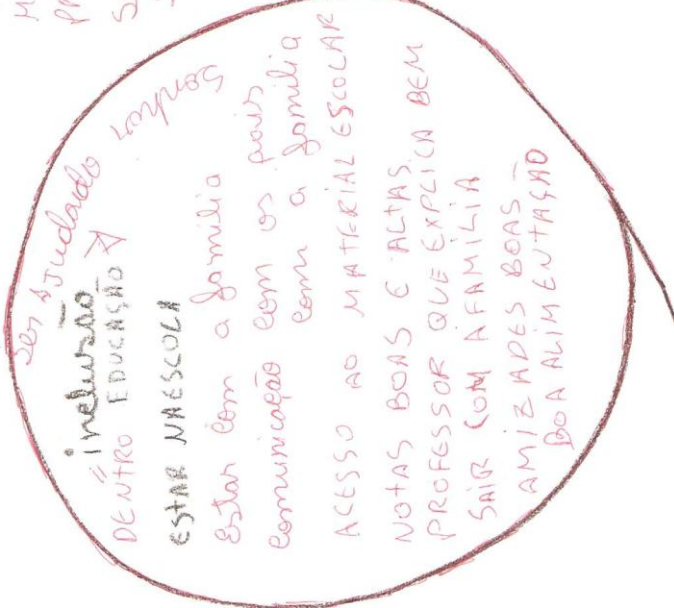 Ser AJudado sempre
inclusão
DENTRO EDUCAÇÃO
EStAR NAESCOLA
Estar com a familia
comunicação com os pais
com a familia
ACESSO AO MATERIAL ESCOLAR
NOtAS BOAS E ALtAS
PROFESSOR QUE EXPLICA BEM
SAIR COM AFAMÍLIA
AMIZADES BOAS
BOA ALIMENTAÇÃO